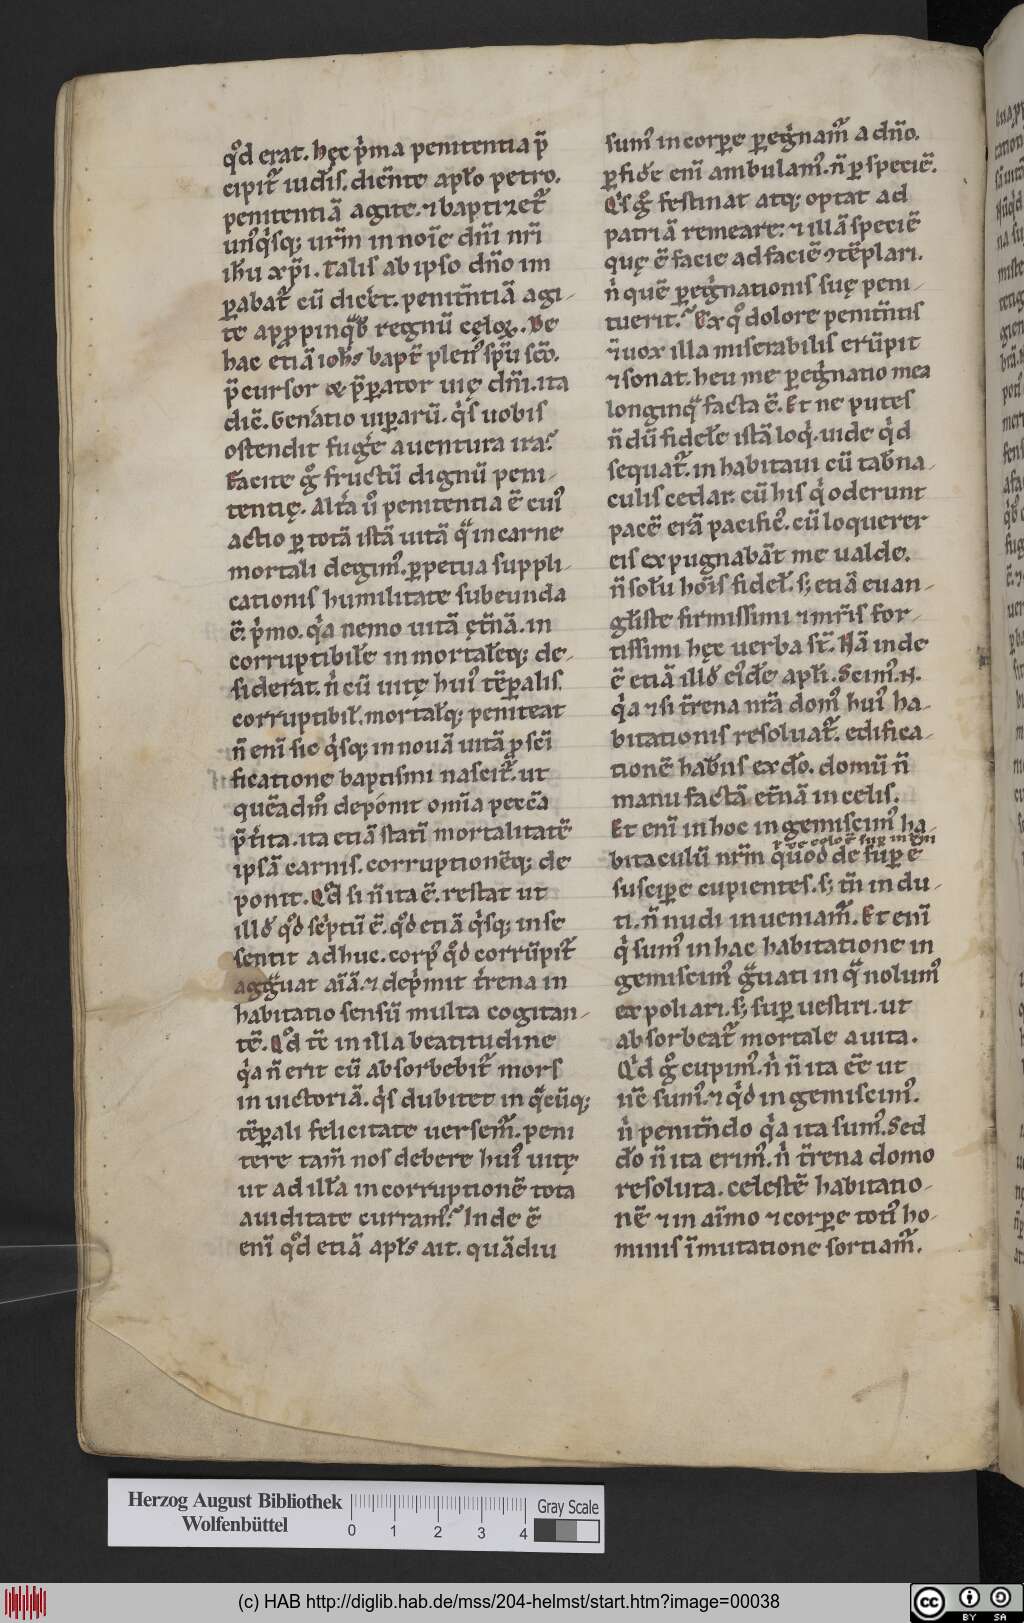 q̊d erat. hęc p'ma penitentia p̄
cipit᷑ iudīs. dicēnte apl̄o petro.
penitentiā agite. ⁊ baptizet᷑
unꝰq'sq; ur̄m in noīe dn̄i nr̄i
ih̄u xp̄i. Talis ab ipso dn̄o im
ꝑabat᷑ cū dic̄et. penitn̄tiā agi-
te appropinqᵃb̄ regnū cęloꝝ. De
hac etiā ioh̄s bapt̄ plenꝰ sp̄u sc̄o.
p̄cursor & p̄ꝑator uię dn̄i. ita
dic̄. Gen̄atio uiꝑarū. q's uobis
ostendit fuḡe a uentura ira?
Facite g̊ fructū dignū peni-
tentię. Alt̄a ů penitentia ē cuiꝰ
actio ꝑ totā istā uitā qᵃ in carne
mortali degimꝰ. ꝑpetua suppli-
cationis humilitate subeunda
ē. p'mo. q'a nemo uitā ęt̄nā. in
corruptibil̄e inmortal̄eq; de-
siderat. n' cū uitę huiꝰ tēꝑalis
corruptibil̄. mortal̄q; peniteat
n̄ enī sic q'sq; in nouā uitā ꝑ sc̄i
ficatione baptismi nascit᷑. ut
quēadm̊ deponit om̄ia pecc̄a
p̄t̄ita. ita etiā statī mortalitatē
ipsā carnis. corruptionēq; de
ponit. Q̊d si n̄ ita ē. restat ut
illd̄ q̊d sc'ptū ē. q̊d etiā q'sq; in se
sentit adhuc. corpꝰ q̊d corrūpit᷑
aggᵃuat aīā. ⁊ dep'mit t̄rena in
habitatio sensū multa cogitan-
tē. Q̊d tē in illa beatitudine
q'a n̄ erit cū absorbebit᷑ mors
in uictoriā. q's dubitet in qᵃcūq;
tēꝑali felicitate uersem᷑. peni
tere tam̄ nos debere huiꝰ uitę
ut ad ill̄a incorruptionē tota
auiditate curramꝰ? Inde ē
enī q̊d etiā apl̄s ait. quādiu
sumꝰ in corꝑe ꝑeg'nam᷑ a dn̄o.
ꝑ fid̄e enī ambulamꝰ. n̄ ꝑ speciē.
Q's g̊ festinat atq; optat ad
patriā remeare: ⁊ illā speciē
quę ē facie ad faciē ꝯtēplari.
n' quē ꝑeg'nationis suę peni-
tuerit? Ex q̊ dolore penitn̄tis
⁊ uox illa miserabilis erūpit
⁊ sonat. heu me ꝑeg'natio mea
longinqᵃ facta ē. Et ne putes
n̄dū fidel̄e istā loq'. uide q'd
sequat᷑. inhabitaui cū tab̄na-
culis cedar. cū his q' oderunt
pacē erā pacificꝰ. cū loquerer
eis expugnabāt me ualde.
n̄ solū hoīs fidel̄. s; etiā euan-
gl̄iste firmissimi ⁊ mr̄is for-
tissimi hęc uerba st̄. Nā inde
ē etiā illd̄ eiꝰd̄e apl̄i. Scimꝰ.N.
q'a ⁊ si t̄rena nr̄a domꝰ huiꝰ ha-
bitationis resoluat᷑. edifica-
tionē hab̄nꝰ ex d̄o. domū n̄
manu factā et̄nā in celis.
Et enī in hoc ingemiscimꝰ ha-
bitaculū nr̄m quod de suꝑ ē
suscipe cupientes. s; tn̄ indu-
ti. n̄ nudi inueniam᷑. Et enī
q' sumꝰ in hac habitatione in
gemiscimꝰ gᵃuati in qᵃ nolumꝰ
expoliari. s; suꝑ uestiri. ut
absorbeat᷑ mortale a uita.
Q'd g̊ cupimꝰ. n' n̄ ita eē ut
nc̄ sumꝰ. ⁊ q'd ingemiscimꝰ.
n' penitn̄do q'a ita sumꝰ. Sed
d̄o n̄ ita erimꝰ. n' t̄rena domo
resoluta. celestē habitatio-
nē ⁊ in aīmo ⁊ corꝑe totiꝰ ho-
minis īmutatione sortiam᷑.
Herzog August Bibliothek
Wolfenbüttel
0 1 2 3 4
Gray Scale
(c) HAB http://diglib.hab.de/mss/204-helmst/start.htm?image=00038
cc BY SA